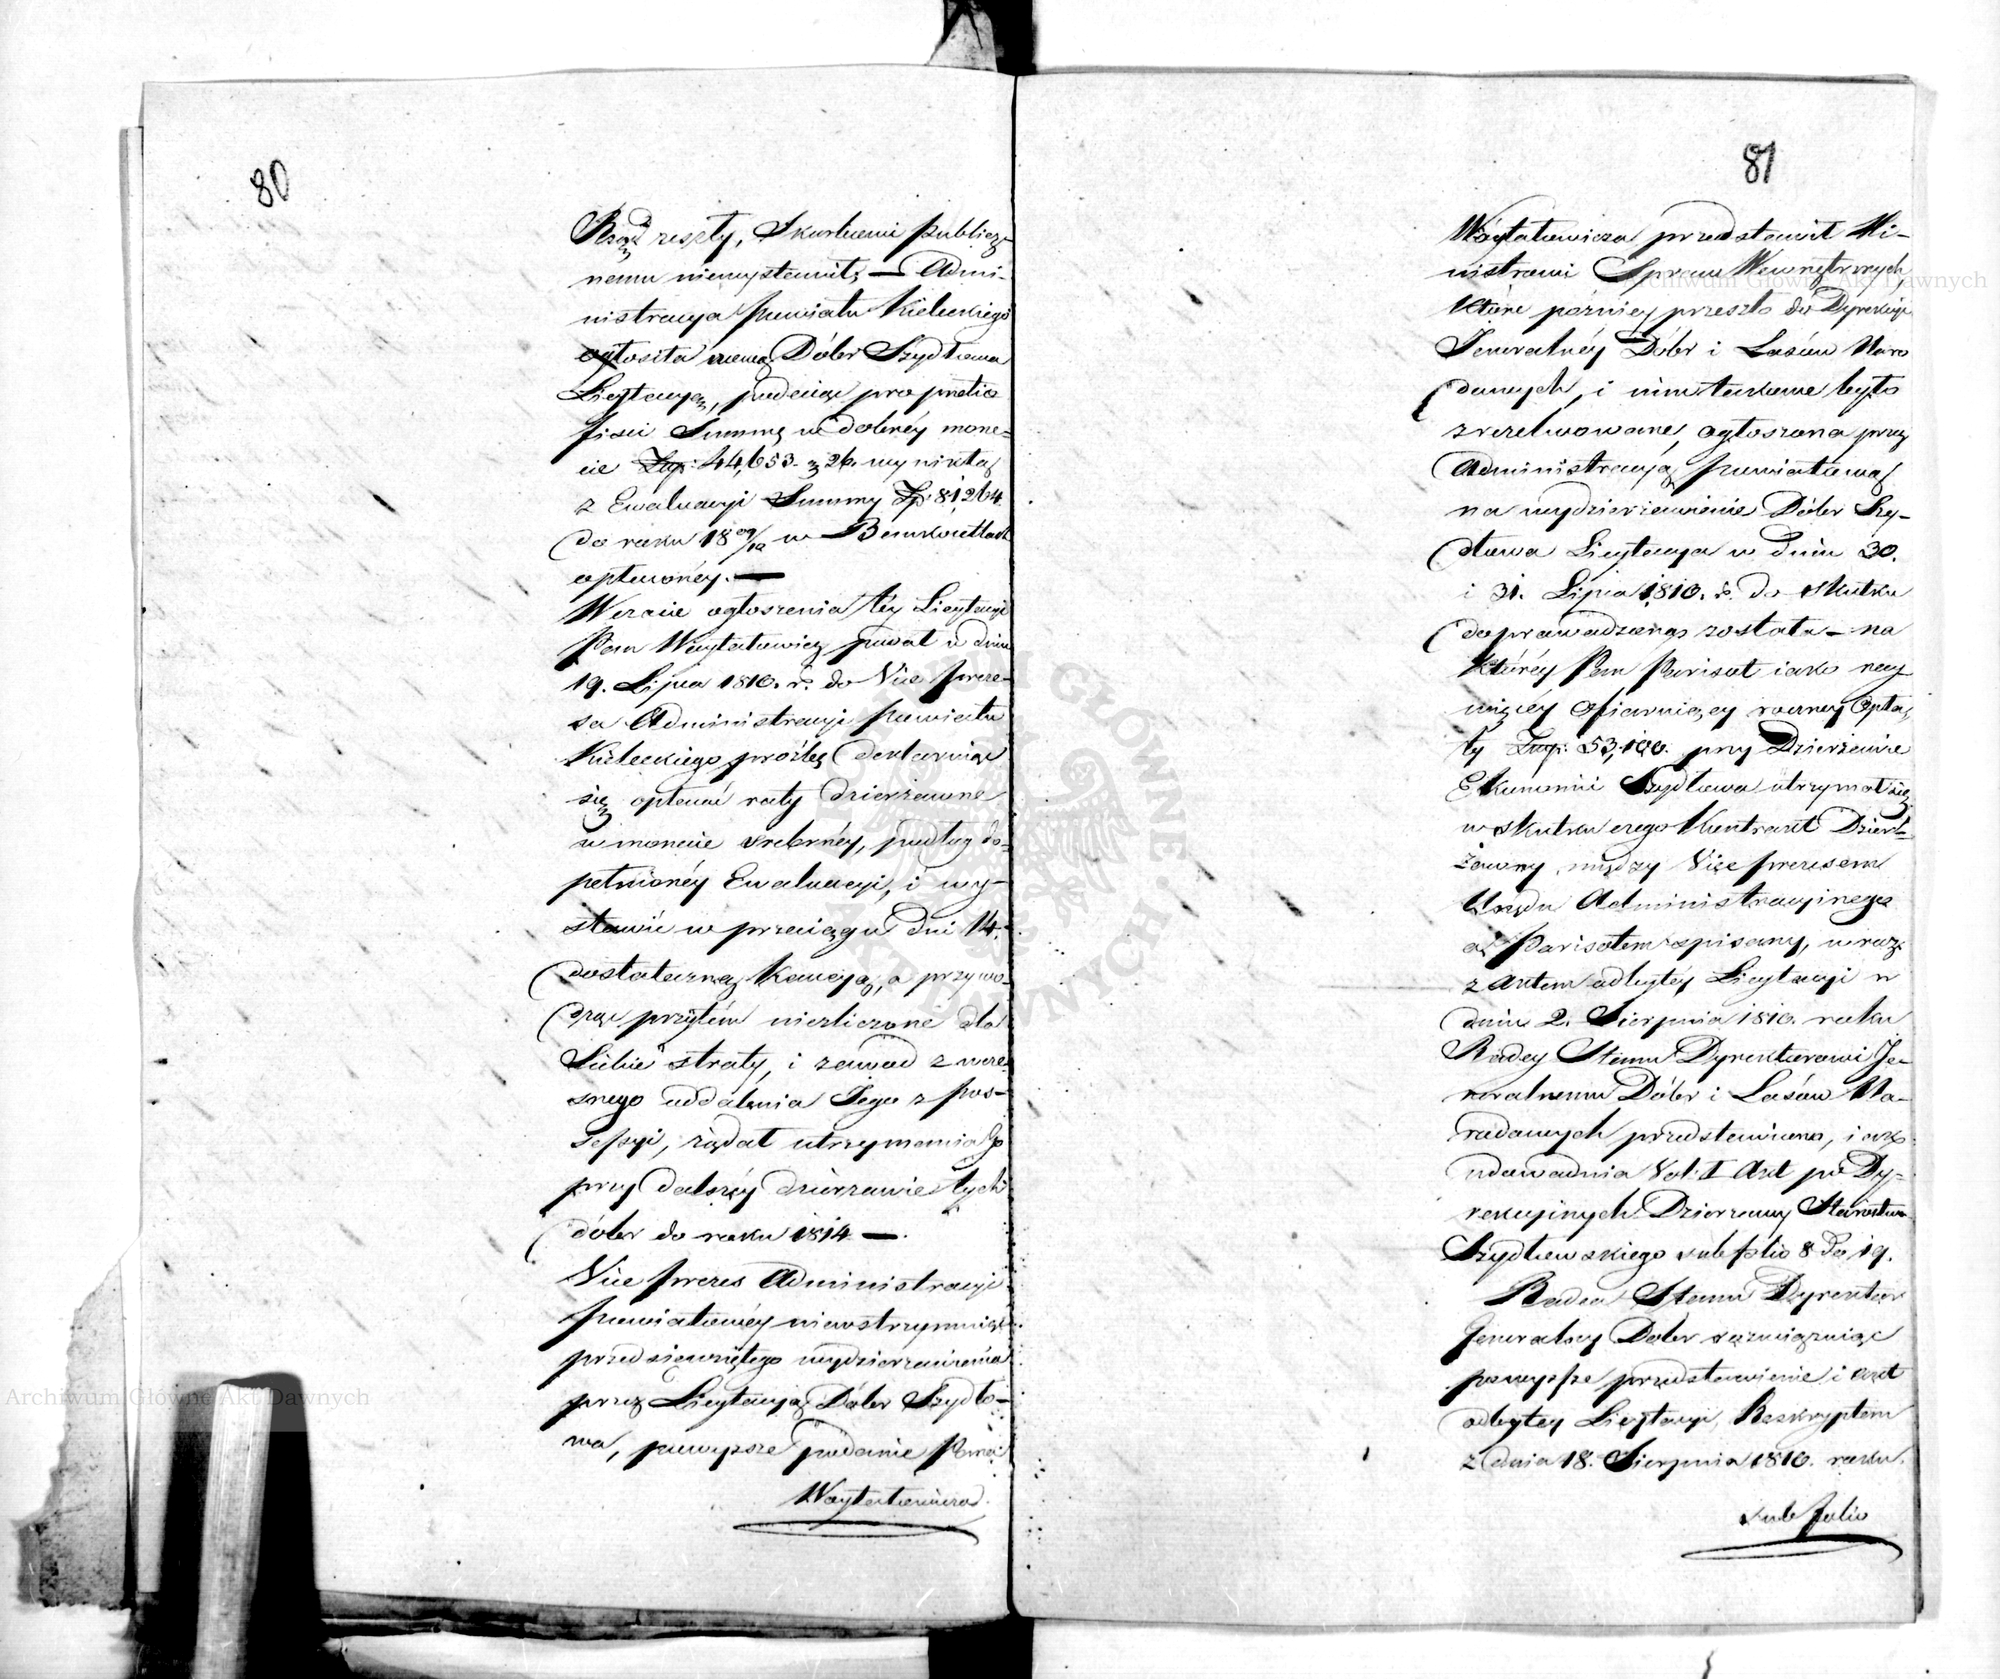 80
Rząd reszty, Skarbowi publicz-
nemu niewystawił; — Admi-
nistracya powiatu Kieleckiego
ogłosiła nową Dóbr Szydłowa
Licytacyą, podaiąc pro pretio
fisci Summę w dobréy mone-
cie Złp: 44,653. g 26. wynikłą
z Ewaluacyi Summy Złp: 81,264.
do roku 18 09/10 w Bankocetlach
opłaconéy. —
W czasie ogłoszenia téy Licytacyi
Pan Woytatowicz podał w dniu
19. Lipca 1810. r. do Vice preze-
sa Administracyi powiatu
Kieleckiego prośbę deklaruiąc
się opłacać raty dzierżawne
w monecie srebrnéy, podług do-
pełnionéy Ewaluacyi, i wy-
stawić w przeciągu dni 14.
dostateczną Kaucyą, a przywo-
dząc przytém niezliczone dla
Siebie straty, i zawod z wcze-
snego oddalenia Jego z pos-
sessyi, żądał utrzymania Go
przy dalszéy dzierżawie tych
dóbr do roku 1814 —.
Vice prezes Administracyi
powiatowéy niewstrzymuiąc
przedsięwziętego wydzierżawienia
przez Licytacyą Dóbr Szydło-
wa, powyższe podanie Pana
Woytatowicza
81
Woytatowicza przedstawił Mi-
nistrowi Spraw Wewnętrznych
które późniey przeszło do Dyrekcyi
Jeneralnéy Dóbr i Lasów Naro
dowych, i nim takowe było
zrezolwowane, ogłoszona przez
Administracyą powiatową
na wydzierżawienie Dóbr Szy-
dłowa Licytacya w dniu 30.
i 31. Lipca 1810. r. do skutku
doprowadzoną została — na
któréy Pan Parisot iako nay-
więcéy ofiaruiący roczney opła-
ty Złp: 53,100. przy Dzierżawie
Ekonomii Szydłowa utrzymał się
w skutku czego Kontrakt Dzier-
żawny między Vice prezesem
Urzędu Administracyinego
a Parisotem spisany, wraz
z Aktem odbytéy Licytacyi w
dniu 2. Sierpnia 1810. roku
Radcy Stanu Dyrektorowi Je-
neralnemu Dóbr i Lasów Na-
rodowych przedstawiono, iako
udowadnia Vol. I Akt po Dy-
rekcyinych Dzierżawy Starostwa
Szydłowskiego sub folio 8 do 19.
Radca Stanu Dyrektor
Generalny Dobr rozwiązuiąc
powyższe przedstawienie i akt
odbytey Licytacyi, Reskryptem
z dnia 18. Sierpnia 1810. roku.
sub folio
Archiwum Główne Akt Dawnych
Archiwum Główne Akt Dawnych